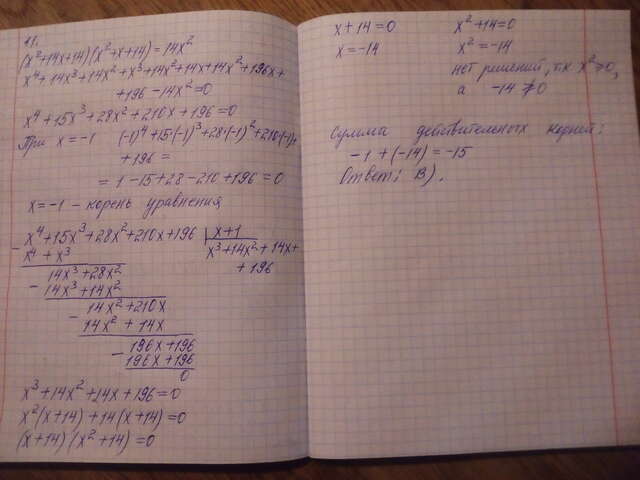 11.
(x²+14x+14)(x²+x+14)=14x²
x⁴+14x³+14x²+x³+14x²+14x+14x²+196x+
+196-14x²=0
x⁴+15x³+28x²+210x+196=0
При x=-1 (-1)⁴+15·(-1)³+28·(-1)²+210·(-1)+
+196=
=1-15+28-210+196=0
x=-1 - корень уравнения
- x⁴+15x³+28x²+210x+196 | x+1
x⁴+x³ x³+14x²+14x+
14x³+28x² +196
- 14x³+14x²
14x²+210x
- 14x²+14x
- 196x+196
196x+196
0
x³+14x²+14x+196=0
x²(x+14)+14(x+14)=0
(x+14)(x²+14)=0
x+14=0 x²+14=0
x=-14 x²=-14
нет решений, т.к x²≥0,
а -14≱0
Сумма действительных корней:
-1+(-14)=-15
Ответ: В).